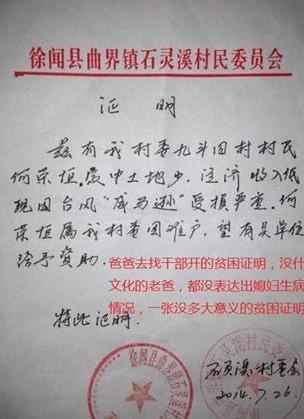 徐闻县曲界镇石灵溪村民委员会
证 明
兹有我村委九斗田村村民
何荣恒,家中土地少,经济收入低
现因台风“威马逊”受损严重,何
荣恒属我村贫困难户,望有关单位
给予资助.
爸爸去找干部开的贫困证明,没什
文化的老爸,都没表达出媳妇生病
情况,一张没多大意义的贫困证明
特此证明.
石灵溪村委会
2014.7.26.